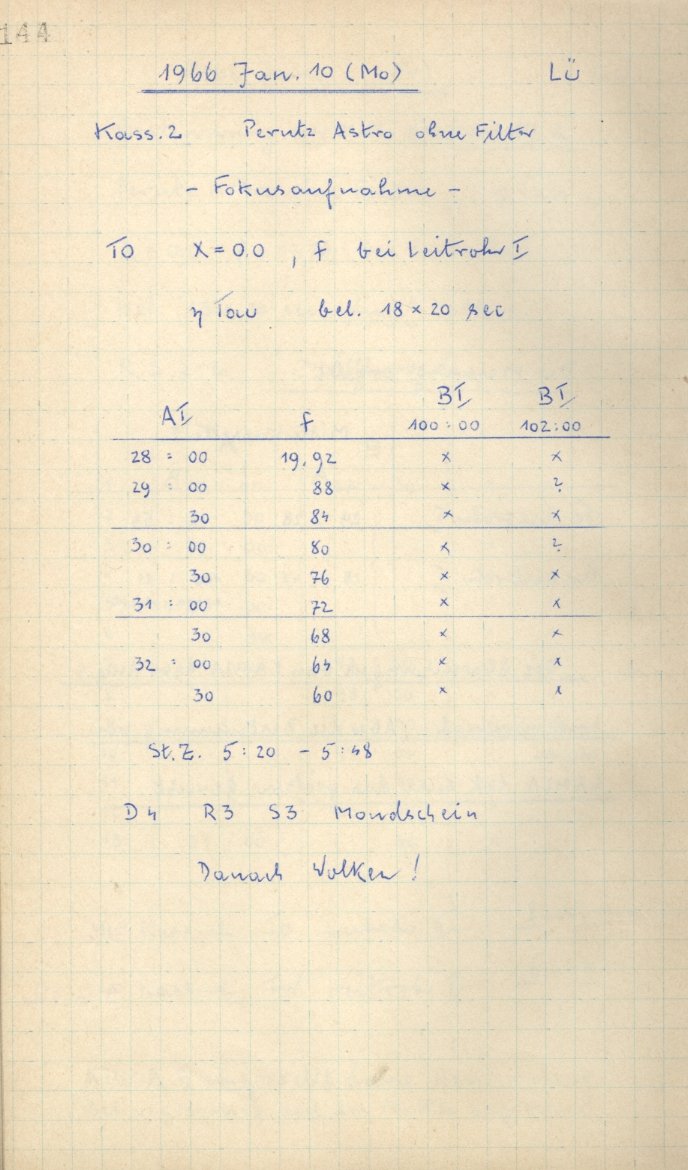 144
1966 Jan. 10 (Mo) Lü
Kass. 2 Perutz Astro ohne Filter
- Fokusaufnahme -
T0 X = 0.0 , f bei Leitrohr I
η Tau bel. 18 x 20 sec
BI BI
AI f 100:00 102:00
28 : 00 19.92 x x
29 : 00 88 x ?
30 84 x x
30 : 00 80 x ?
30 76 x x
31 : 00 72 x x
30 68 x x
32 : 00 64 x x
30 60 x x
St.Z. 5:20 - 5:48
D4 R3 S3 Mondschein
Danach Wolken!